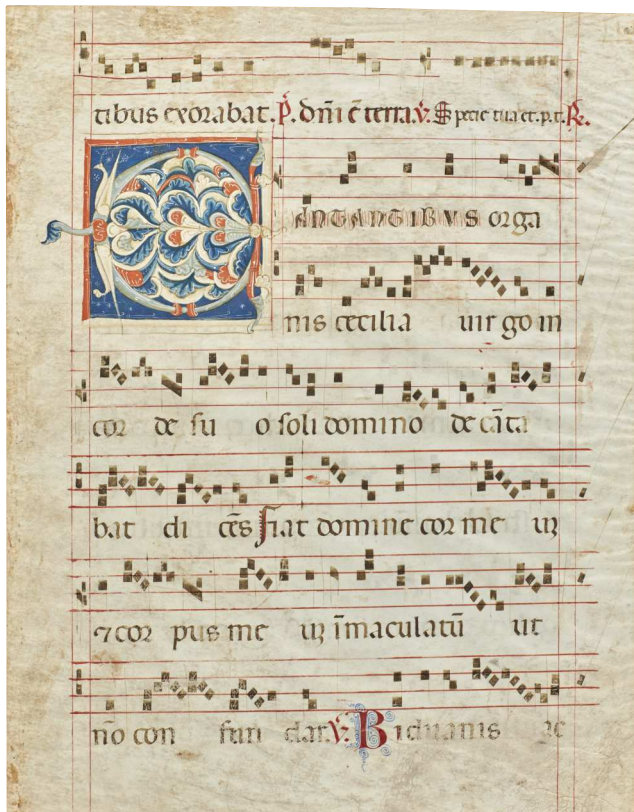 tibus exorabat. P̄. dm̄i ē terra. v̄. Specie tua et. p. t. R̄.
CANTANTIBVS orga
nis cecilia uir go in
cor de su o soli domino de cāta
bat di cēs fiat domine cor me uꝫ
⁊ cor pus me uꝫ īmaculatū ut
no᷑ con fun dar. v̄. Biduanis ac